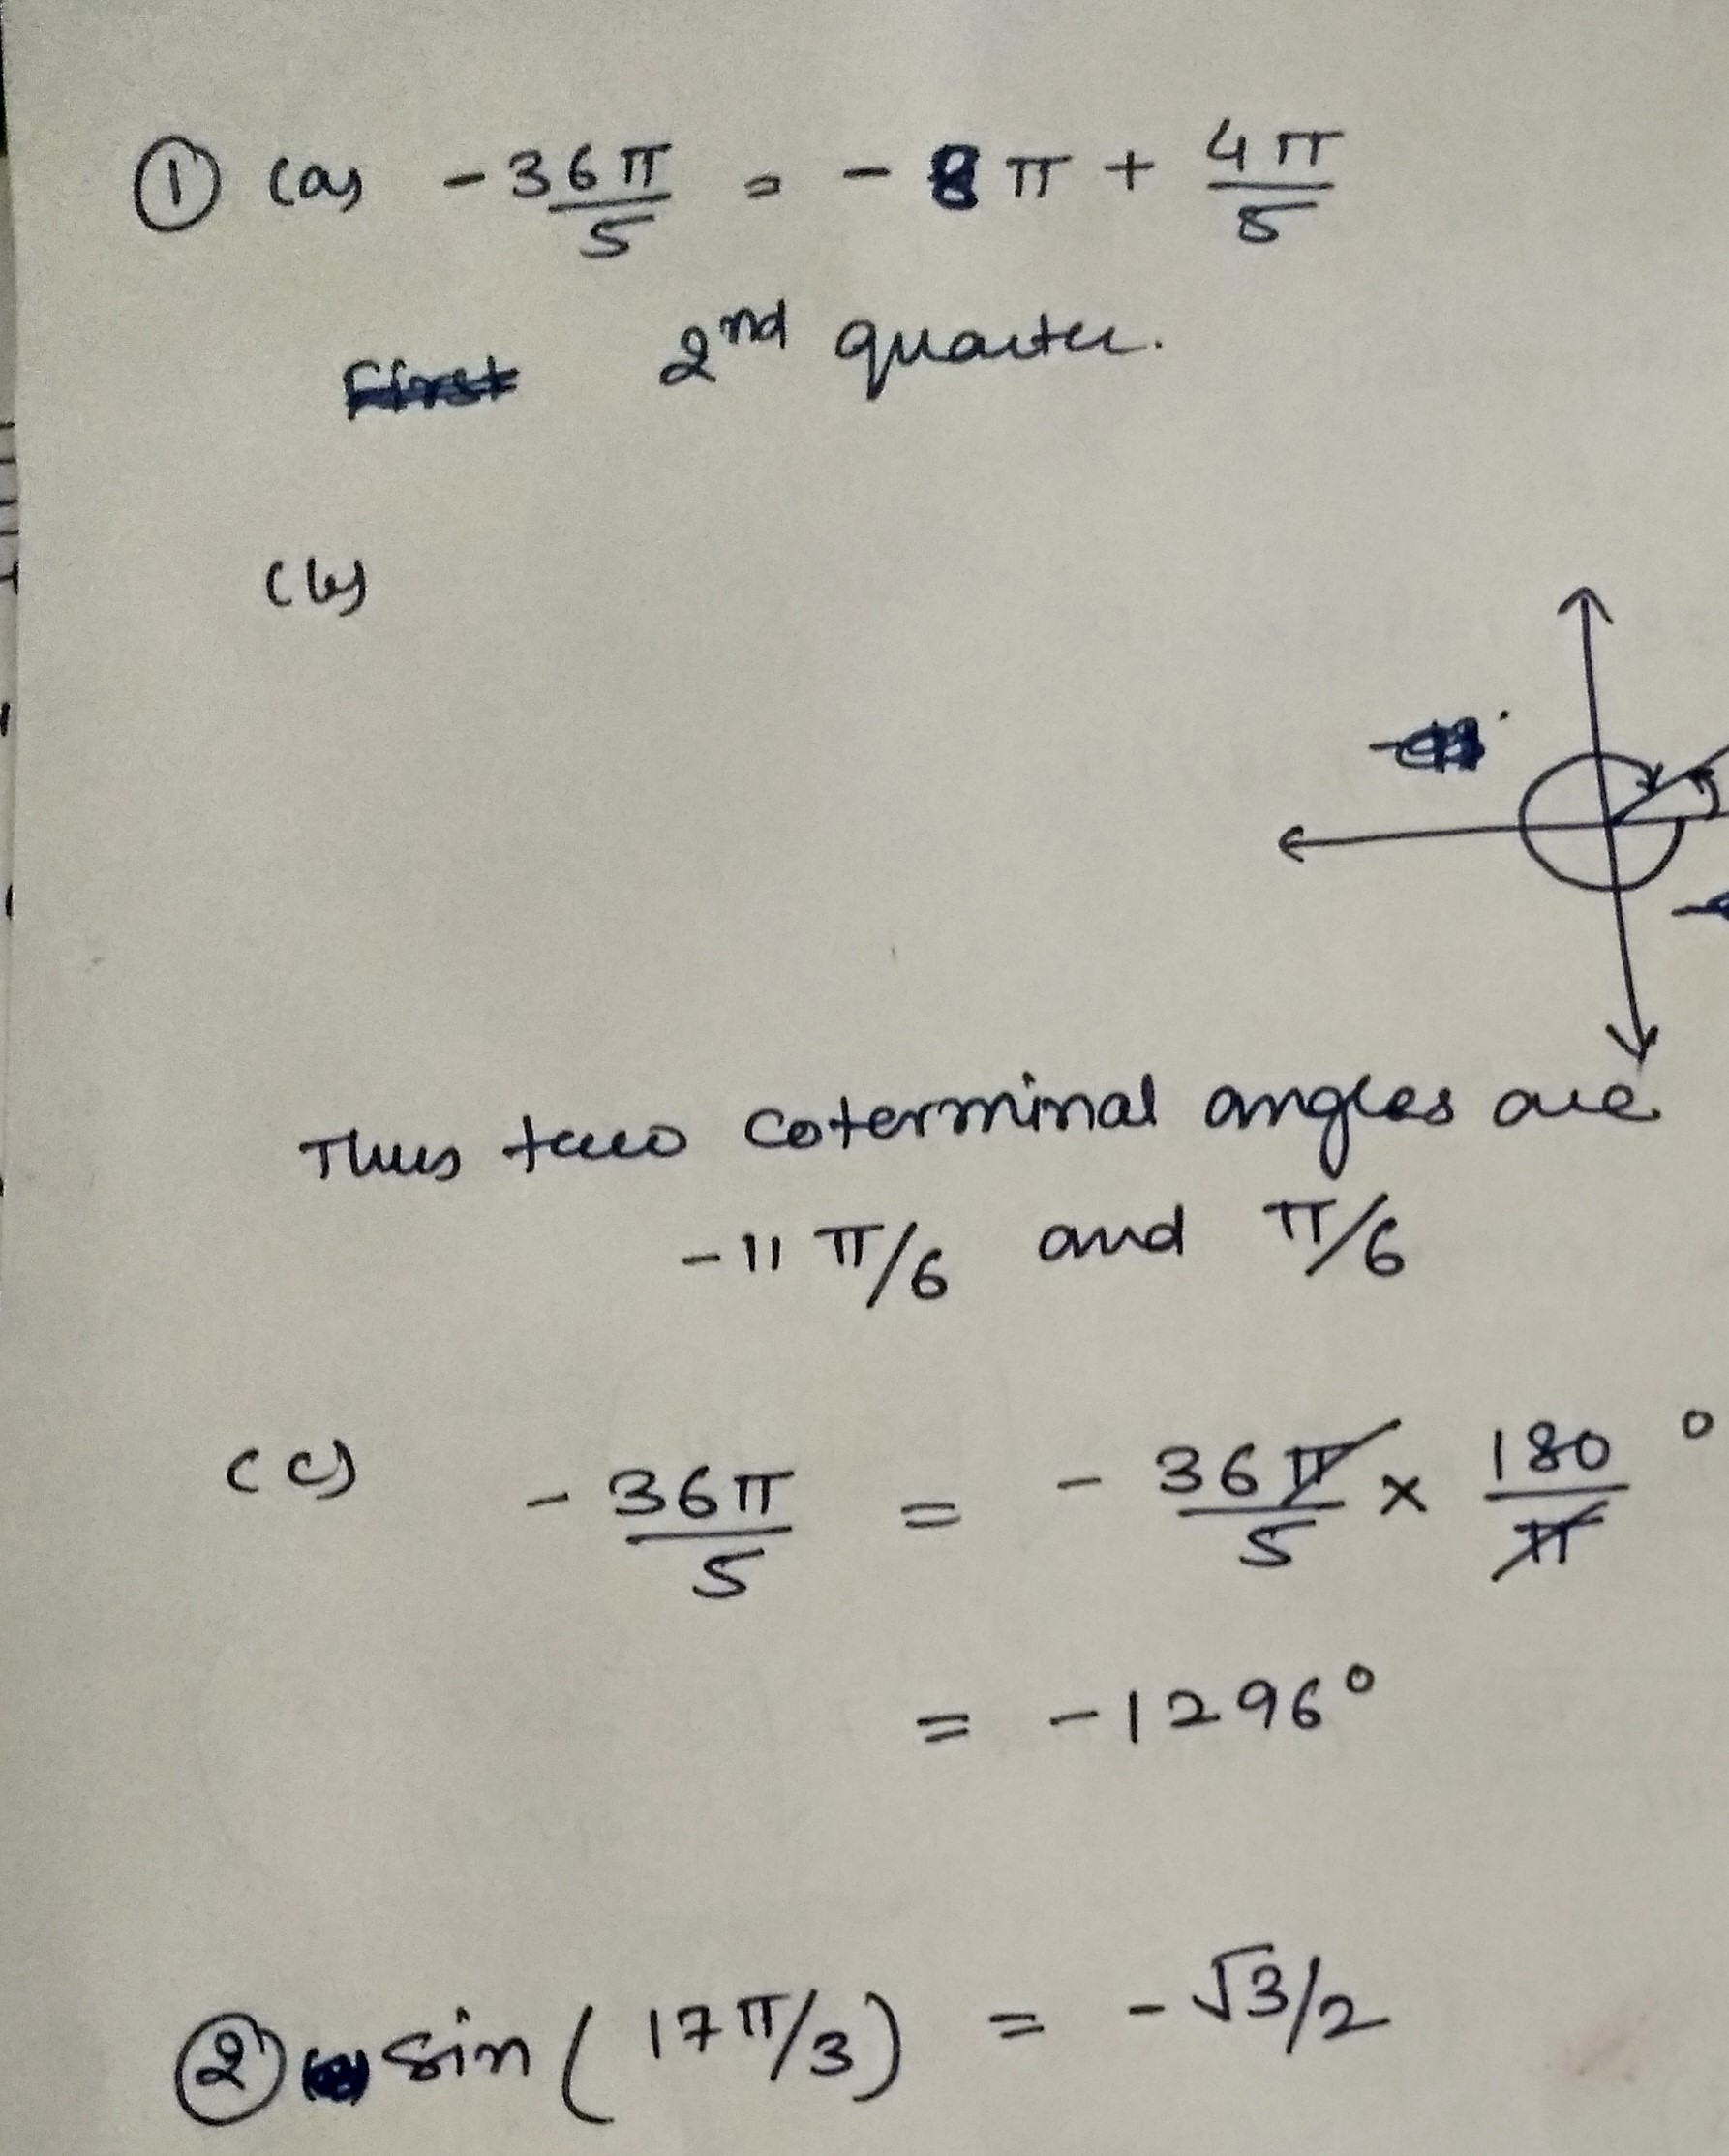 ① (a) -36π/5 = -8π + 4π/5
First 2nd quarter.
(b)
Thus two coterminal angles are
-11π/6 and π/6
(c) -36π/5 = -36π/5 × 180°/π
= -1296°
② sin(17π/3) = -√3/2